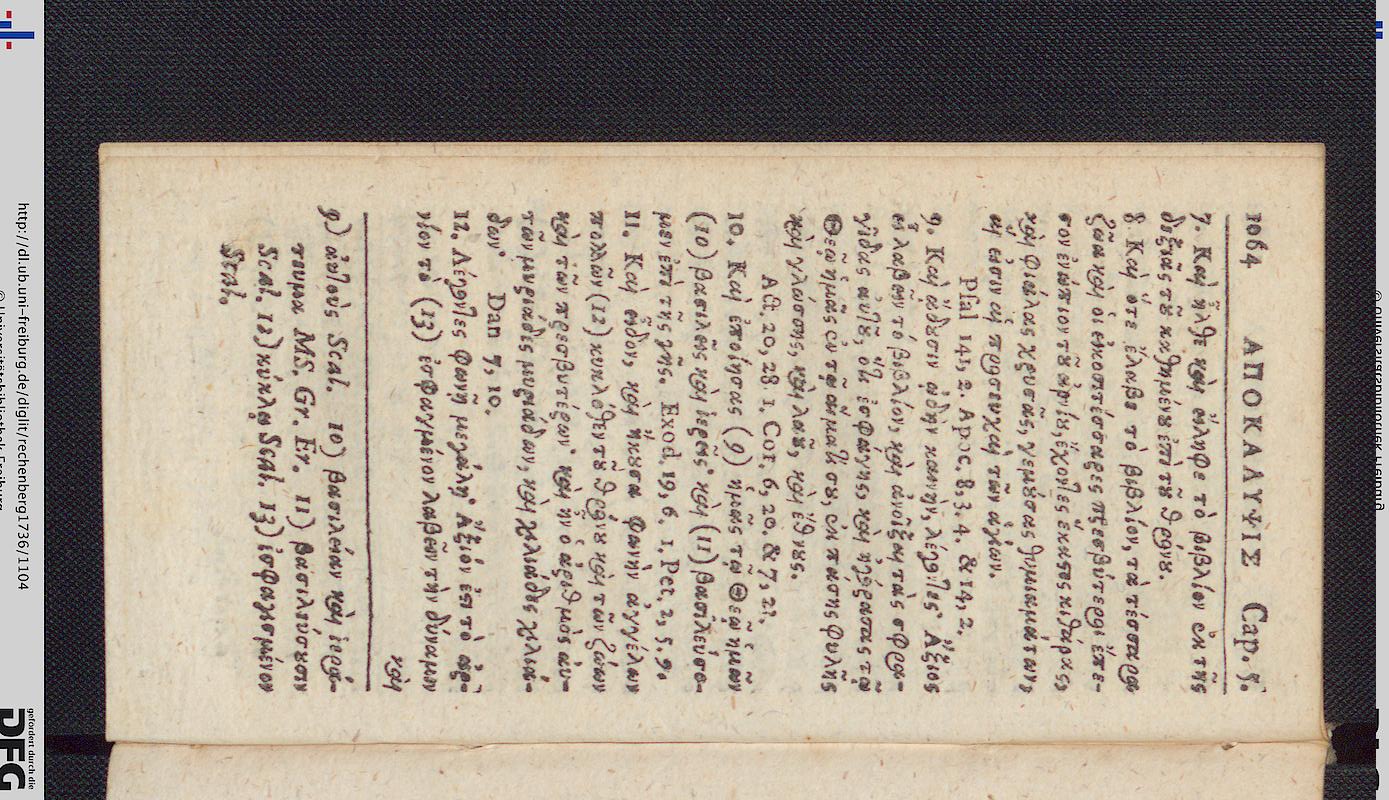 1064 ΑΠΟΚΑΛΥΨΙΣ Cap. 5.
7. Καὶ ἦλθε καὶ εἴληφε τὸ βιβλίον ἐκ τῆς
δεξιᾶς τοῦ καθημένου ἐπὶ τοῦ θρόνου.
8 Καὶ ὅτε ἔλαβε τὸ βιβλίον, τὰ τέσσαρα
ζῶα καὶ οἱ εἰκοσιτέσσαρες πρεσβύτεροι ἔπε-
σον ἐνώπιον τοῦ ἀρνίου, ἔχοντες ἕκαστος κιθάρας,
καὶ φιάλας χρυσᾶς, γεμούσας θυμιαμάτων,
αἵ εἰσιν αἱ προσευχαὶ τῶν ἁγίων.
Psal 141, 2. Apoc. 8, 3. 4. & 14, 2.
9. Καὶ ᾄδουσιν ᾠδὴν καινὴν, λέγοντες· Ἄξιος
εἶ λαβεῖν τὸ βιβλίον, καὶ ἀνοῖξαι τὰς σφρα-
γῖδας αὐτοῦ, ὅτι ἐσφάγης, καὶ ἠγόρασας τῷ
Θεῷ ἡμᾶς ἐν τῷ αἵματί σου, ἐκ πάσης φυλῆς
καὶ γλώσσης, καὶ λαοῦ, καὶ ἔθνους.
Act. 20, 28 1. Cor. 6, 20. & 7, 23.
10. Καὶ ἐποίησας (9) ἡμᾶς τῷ Θεῷ ἡμῶν
(10) βασιλεῖς καὶ ἱερεῖς· καὶ (11) βασιλεύσο-
μεν ἐπὶ τῆς γῆς. Exod. 19, 6. 1. Pet, 2, 5. 9.
11. Καὶ εἶδον, καὶ ἤκουσα φωνὴν ἀγγέλων
πολλῶν (12) κυκλόθεν τοῦ θρόνου καὶ τῶν ζώων
καὶ τῶν πρεσβυτέρων· καὶ ἦν ὁ ἀριθμὸς αὐ-
τῶν μυριάδες μυριάδων, καὶ χιλιάδες χιλιά-
δων· Dan 7, 10.
12. Λέγοντες φωνῇ μεγάλῃ· Ἄξιόν ἐστι τὸ ἀρ-
νίον τὸ (13) ἐσφαγμένον λαβεῖν τὴν δύναμιν
καὶ
9) αὐτοὺς Scal. 10) βασιλείαν καὶ ἱερά-
τευμα MS. Gr. Er. 11) βασιλεύσουσιν
Scal. 12) κύκλῳ Scal. 13) ἐσφαγισμένον
Scal.
http://dl.ub.uni-freiburg.de/diglit/rechenberg1736/1104
© Universitätsbibliothek Freiburg
gefördert durch die
DFG